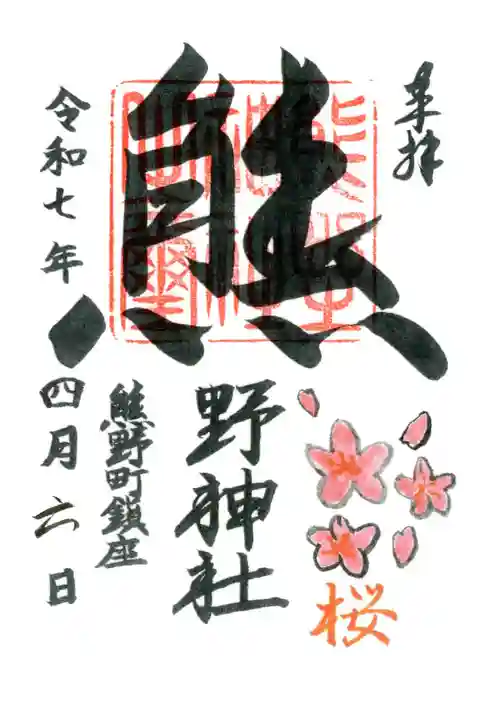 奉拝
熊野神社
桜
熊野町鎮座
令和七年四月六日